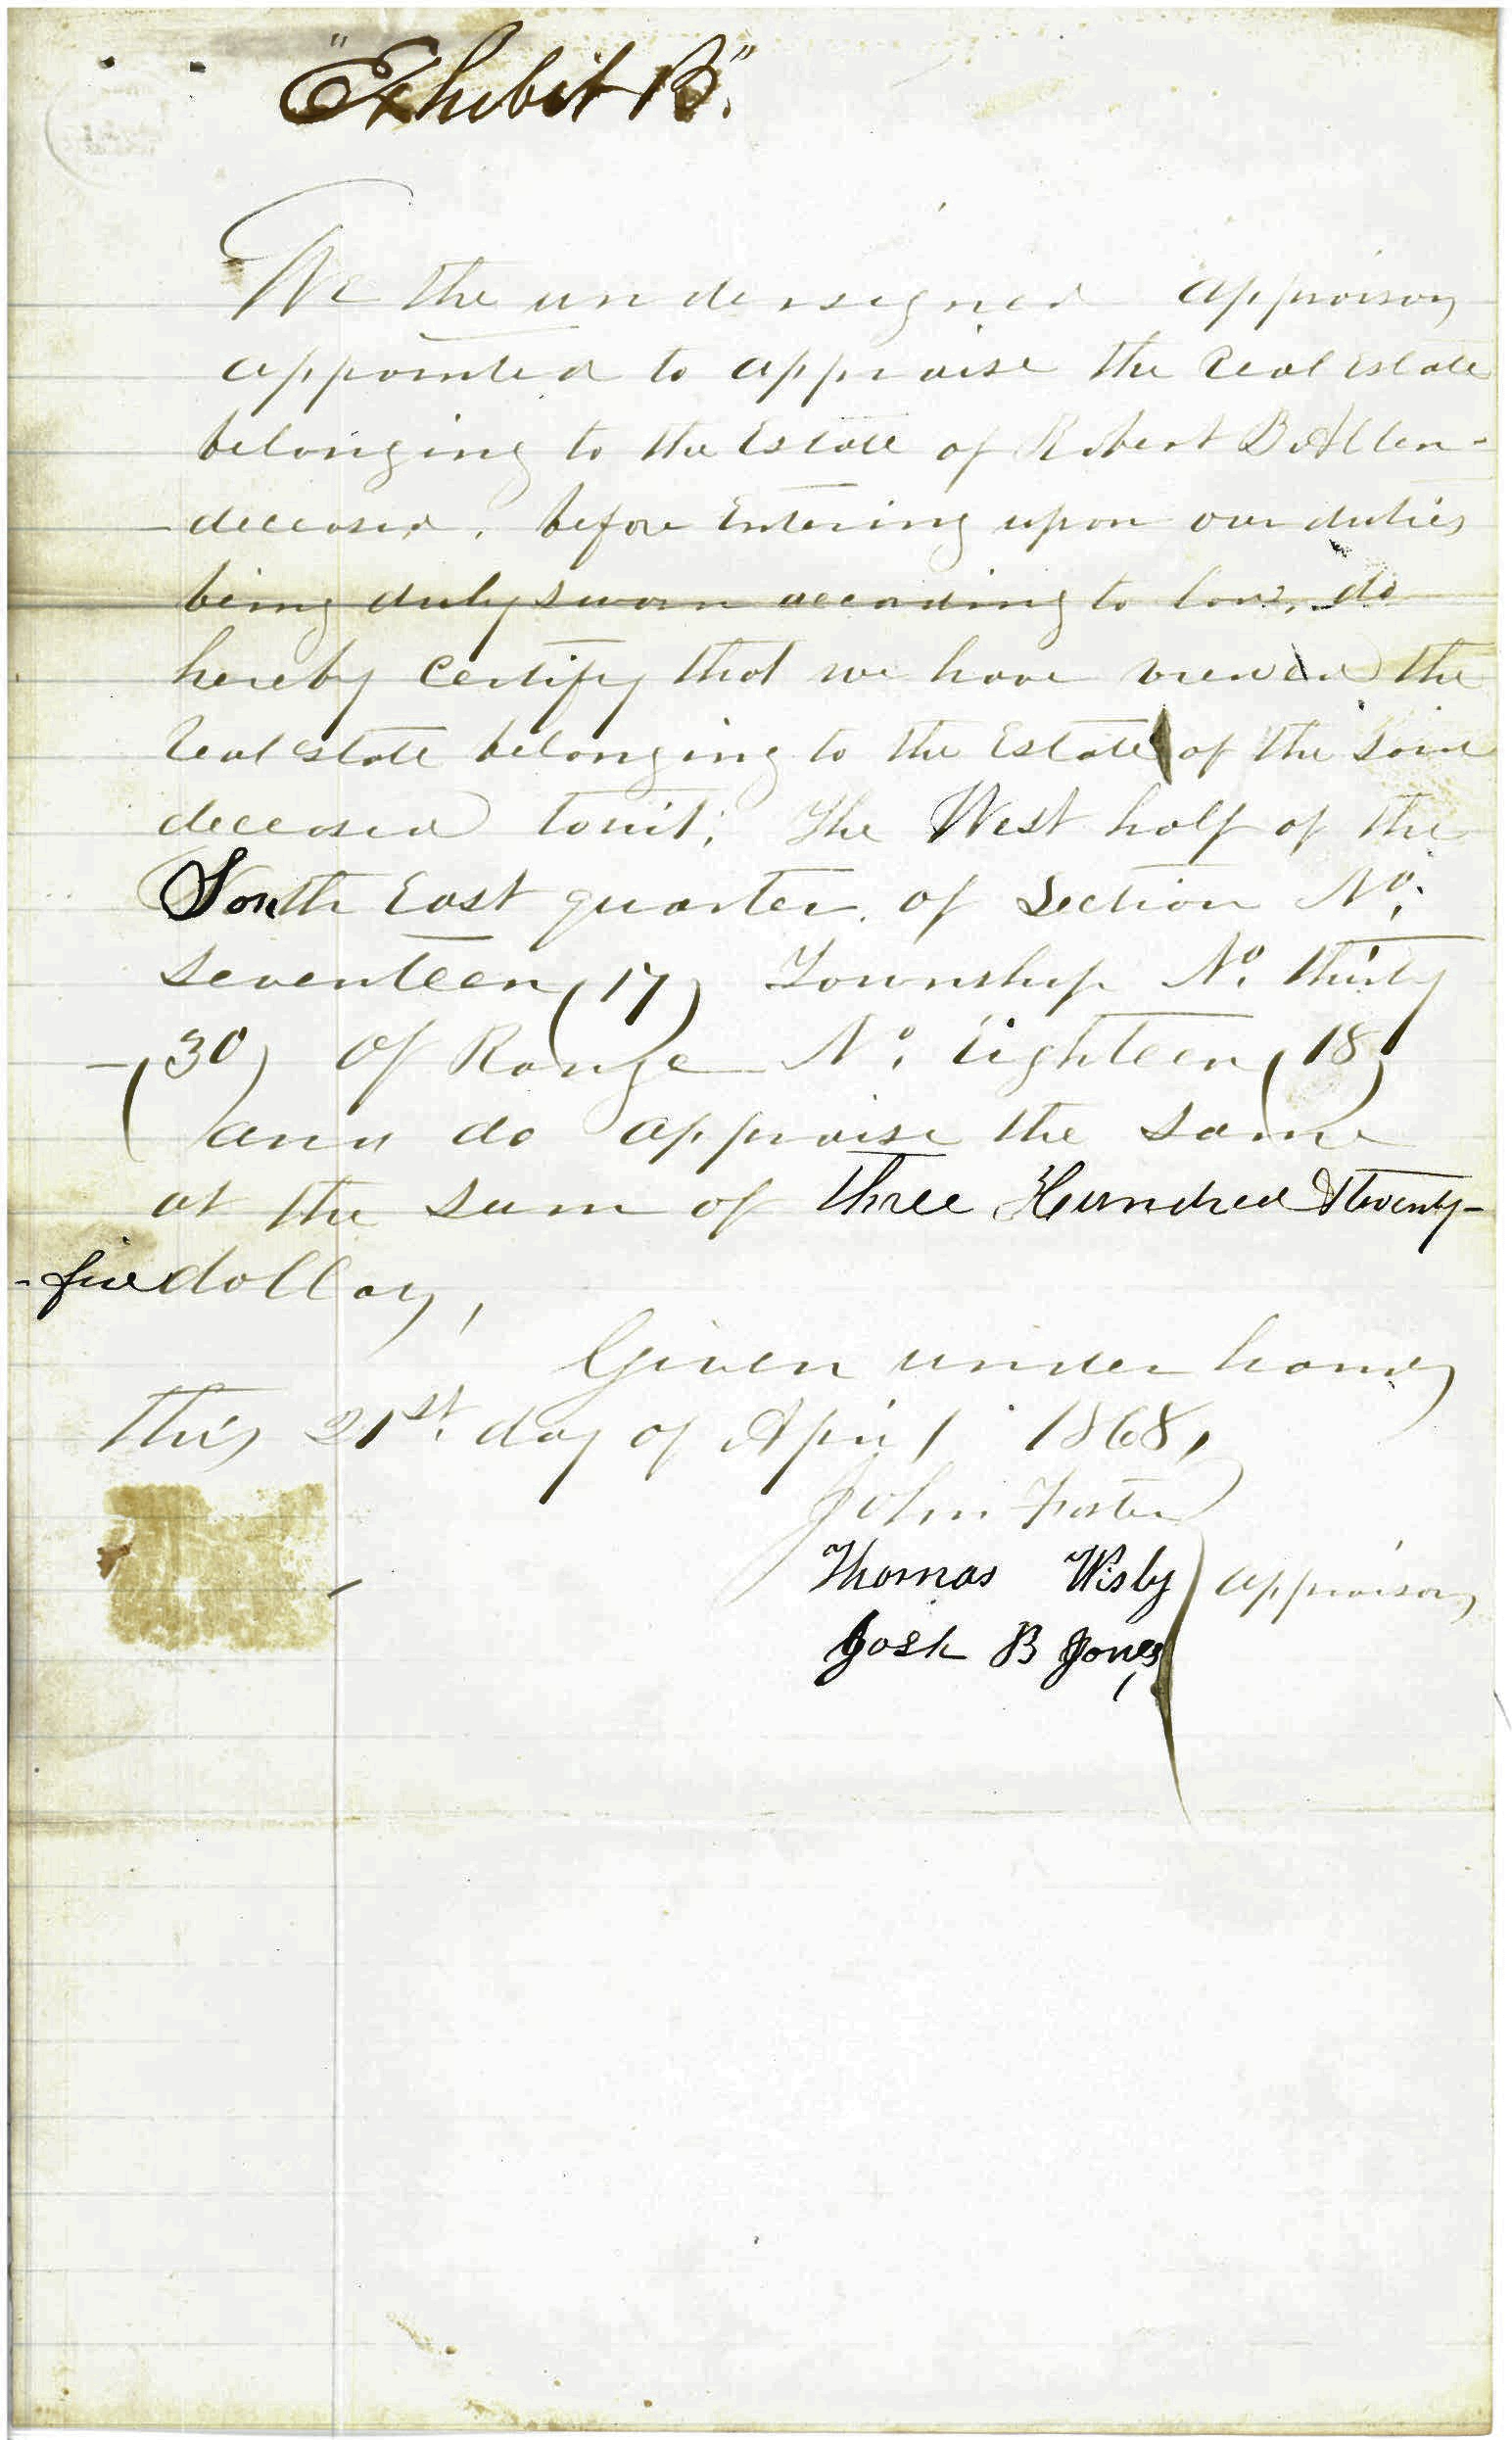 "Exhibit B".
We the undersigned appraisors
appointed to appraise the real estate
belonging to the Estate of Robert B Allen-
deceased, before Entering upon our duties
being duly sworn according to law, do
hereby Certify that we have viewed the
real estate belonging to the Estate of the said
deceased towit; The West half of the
South East quarter of Section No.
Seventeen (17) Township No. thirty
(30) of Range No. Eighteen (18)
and do appraise the same
at the sum of three Hundred & twenty-
-five dollars,
Given under hands
this 21st day of April 1868,
John Foster
Thomas Wisby } appraisors
Josh B Jones